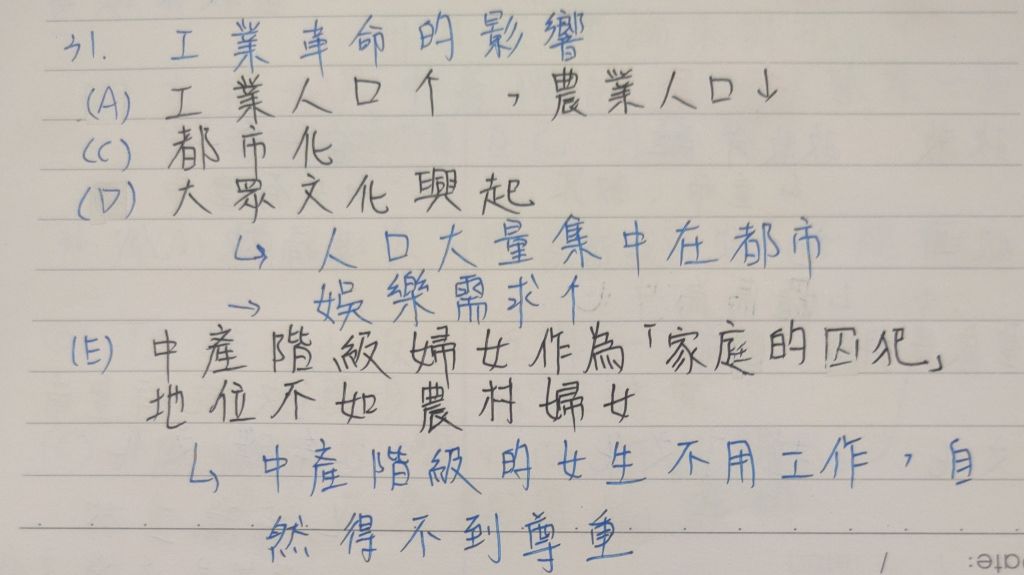 31. 工業革命的影響
(A) 工業人口↑，農業人口↓
(C) 都市化
(D) 大眾文化興起
↳ 人口大量集中在都市
→ 娛樂需求↑
(E) 中產階級婦女作為「家庭的囚犯」
地位不如農村婦女
↳ 中產階級的女生不用工作，自
然得不到尊重
ate: /